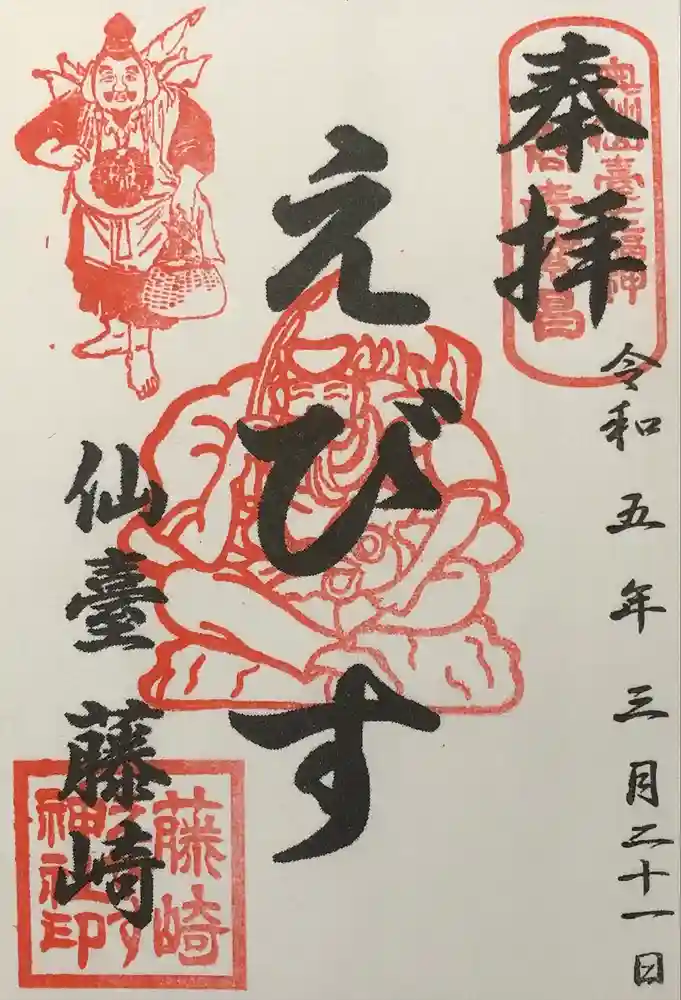 奉拝
奥州仙臺七福神
令和五年三月二十一日
えびす
仙臺 藤崎
藤崎
えびす
神社印